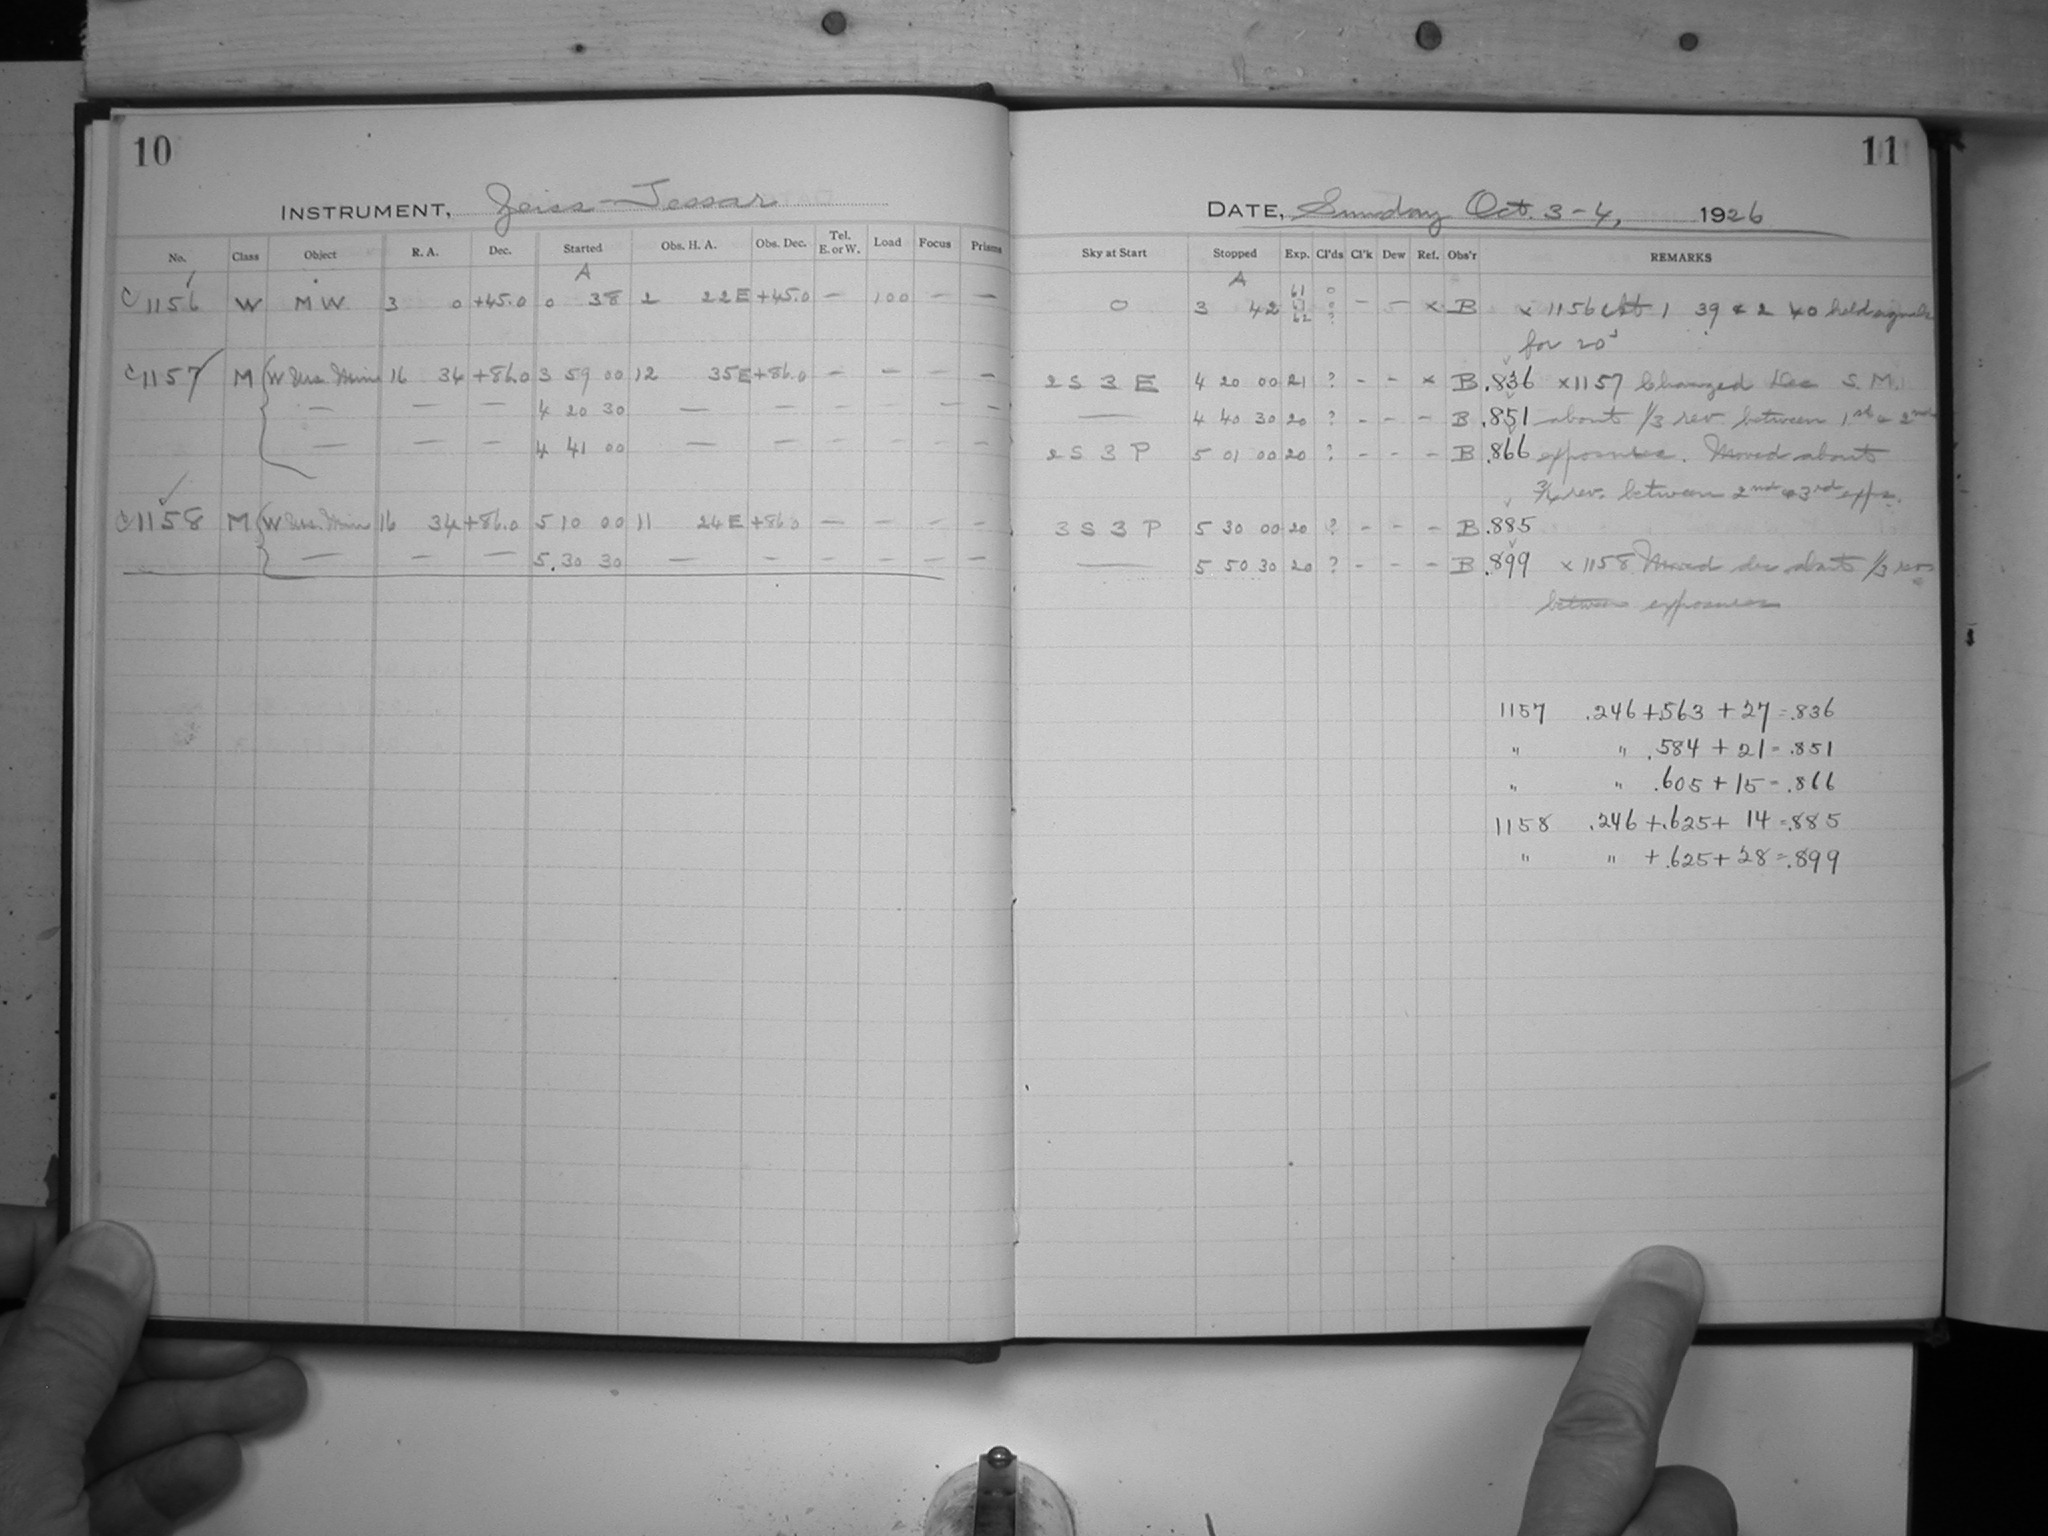 10
INSTRUMENT, Zeiss-Tessar
No. Class Object R. A. Dec. Started Obs. H. A. Obs. Dec. Tel. E. or W. Load Focus Prisms
A
C 1156 W MW 3 0 +45.0 0 38 2 22E +45.0 — 100 — —
C 1157 M W Urs. Min 16 34 +86.0 3 59 00 12 35E +86.0 — — — —
— — — 4 20 30 — — — — — —
— — — 4 41 00 — — — — — —
C 1158 M W Urs. Min 16 34 +86.0 5 10 00 11 24E +86.0 — — — —
— — — 5.30 30 — — — — — —
11
DATE, Sunday Oct. 3-4, 1926
Sky at Start Stopped Exp. Cl'ds Cl'k Dew Ref. Obs'r REMARKS
A
61 0
0 3 42 61 0 - - x B x 1156 At 1 39 & 2 40 held signals
62 ?
for 20s
2 S 3 E 4 20 00 21 ? - - x B .836 x1157 Changed Dec S. M.
— 4 40 30 20 ? - - - B .851 about 1/3 rev. between 1st & 2nd
2 S 3 P 5 01 00 20 ? - - - B .866 exposures. Moved about
3/4 rev. between 2nd & 3rd exps.
3 S 3 P 5 30 00 20 ? - - - B .885
— 5 50 30 20 ? - - - B .899 x 1158 Moved dec about 1/3 rev
between exposures
1157 .246 +.563 + 27 = .836
" " .584 + 21 = .851
" " .605 + 15 = .866
1158 .246 +.625 + 14 = .885
" " + .625 + 28 = .899